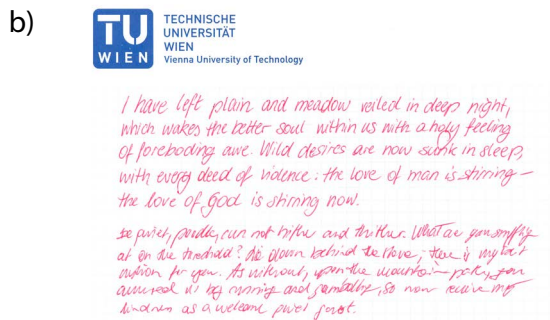 b)
TU
WIEN
TECHNISCHE
UNIVERSITÄT
WIEN
Vienna University of Technology
I have left plain and meadow veiled in deep night,
which wakes the better soul within us with a holy feeling
of foreboding awe. Wild desires are now sunk in sleep,
with every deed of violence: the love of man is stirring –
the love of God is stirring now.
be quiet, poodle, run not hither and thither. What are you snuffling
at on the threshold? lie down behind the stove; there is my best
cushion for you. As without, upon the mountain-path, you
amused us by running and gambolling, so now receive my
kindness as a welcome quiet guest.